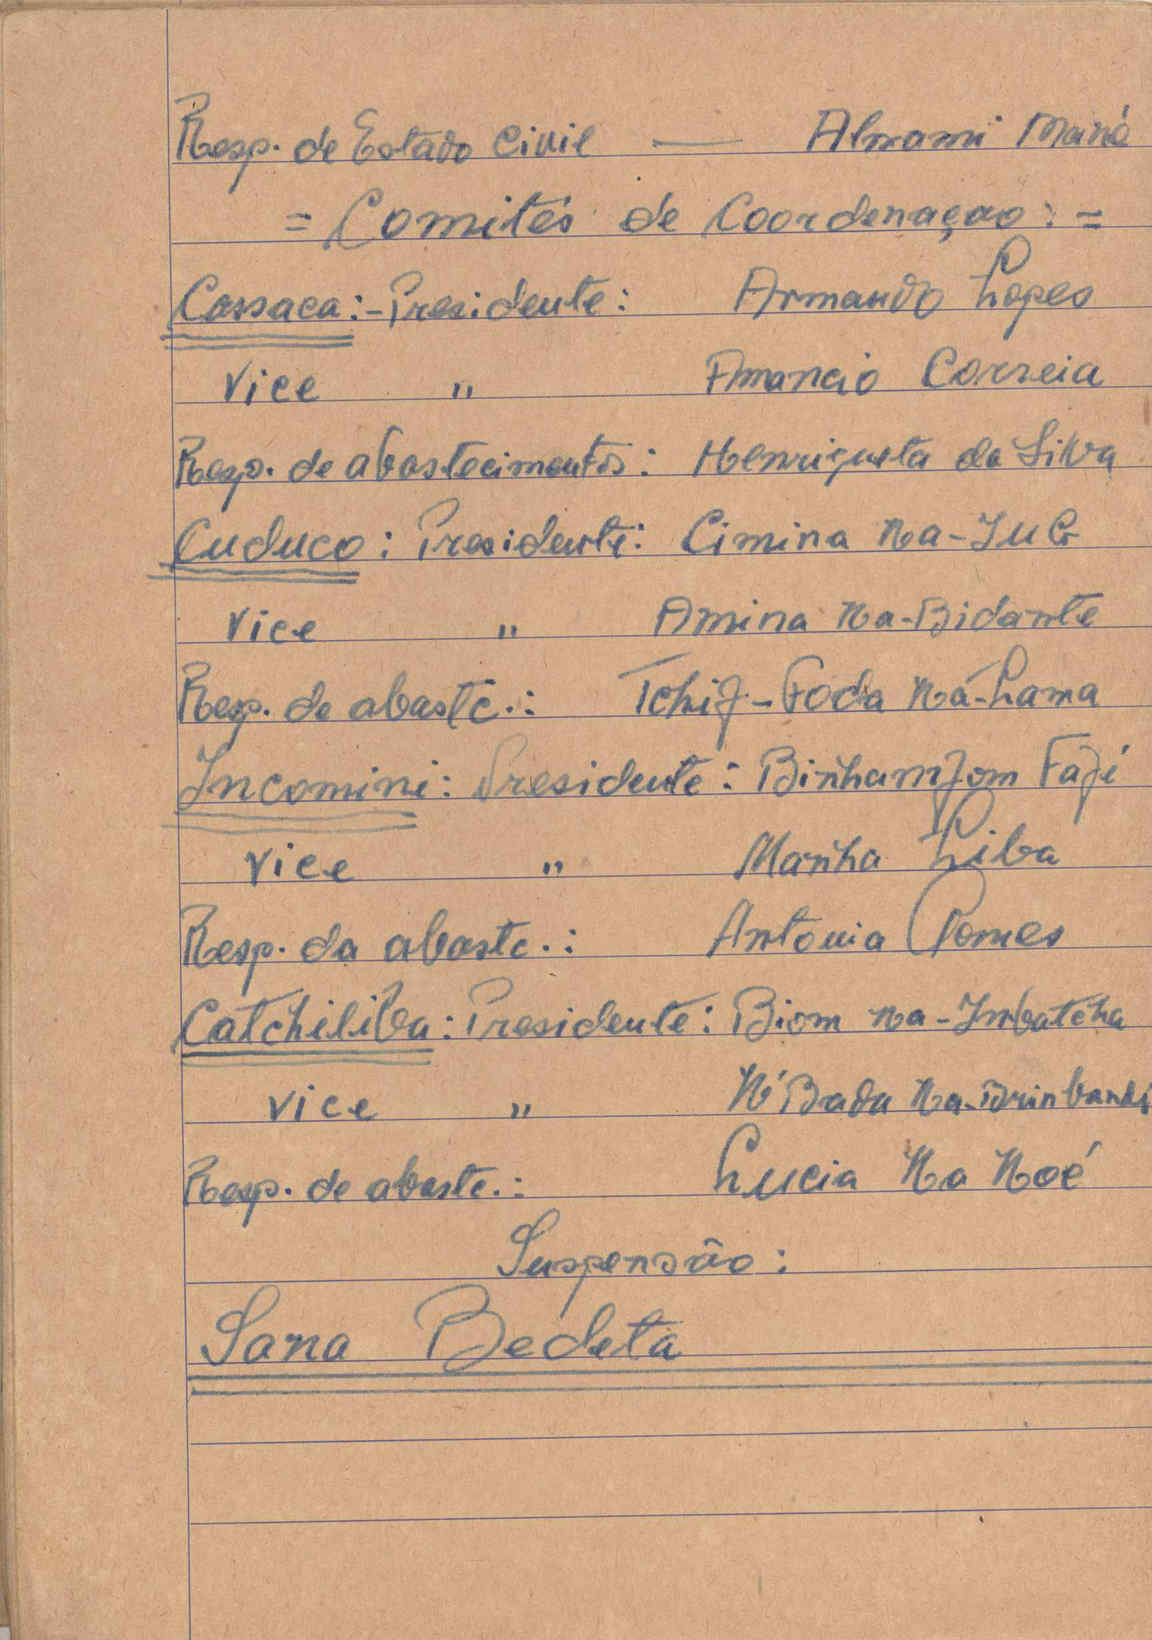 Resp. de Estado Civil — Almami Mané
= Comités de Coordenaçao: =
Cassaca:- Presidente: Armando Lopes
Vice " Amancio Correia
Resp. de abastecimentos: Henriqueta da Silva
Cuduco: Presidente: Cimina Na-Iuc
Vice " Amina Na-Bidante
Resp. de abastc.: Tchif-Foda Ná-Lama
Incomini: Presidente: Fafé
Vice " Marinha Liba
Resp. da abastc.: Antonia Gomes
Catchiliba: Presidente: Biom na-Imbatcha
Vice " N'Bada Na-
Resp. de abastc.: Lucia Na Noé
Suspensão:
Sana Bedeta